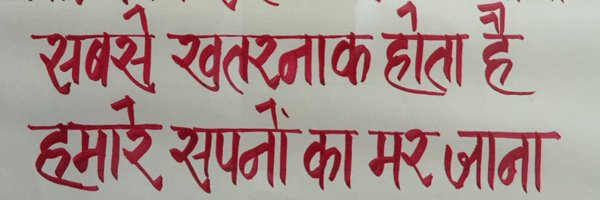 सबसे खतरनाक होता है
हमारे सपनों का मर जाना